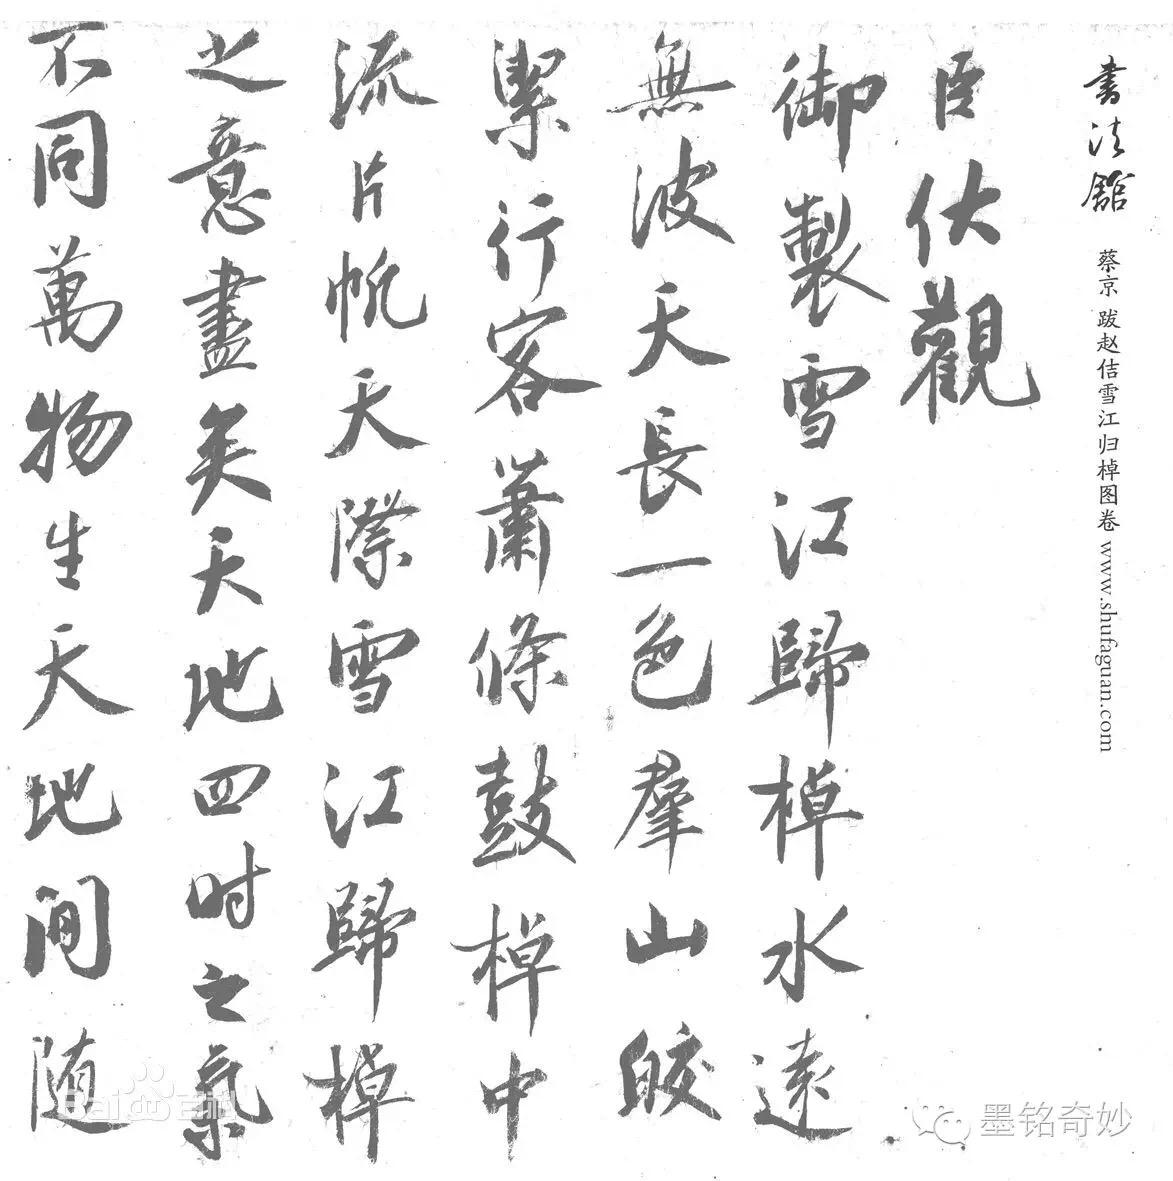 书法馆 蔡京 跋赵佶雪江归棹图卷 www.shufaguan.com
臣伏觀
御製雪江歸棹水遠
無波天長一色羣山皎
潔行客蕭條鼓棹中
流片帆天際雪江歸棹
之意盡矣天地四時之氣
不同萬物生天地間随
Baidu百科
墨铭奇妙